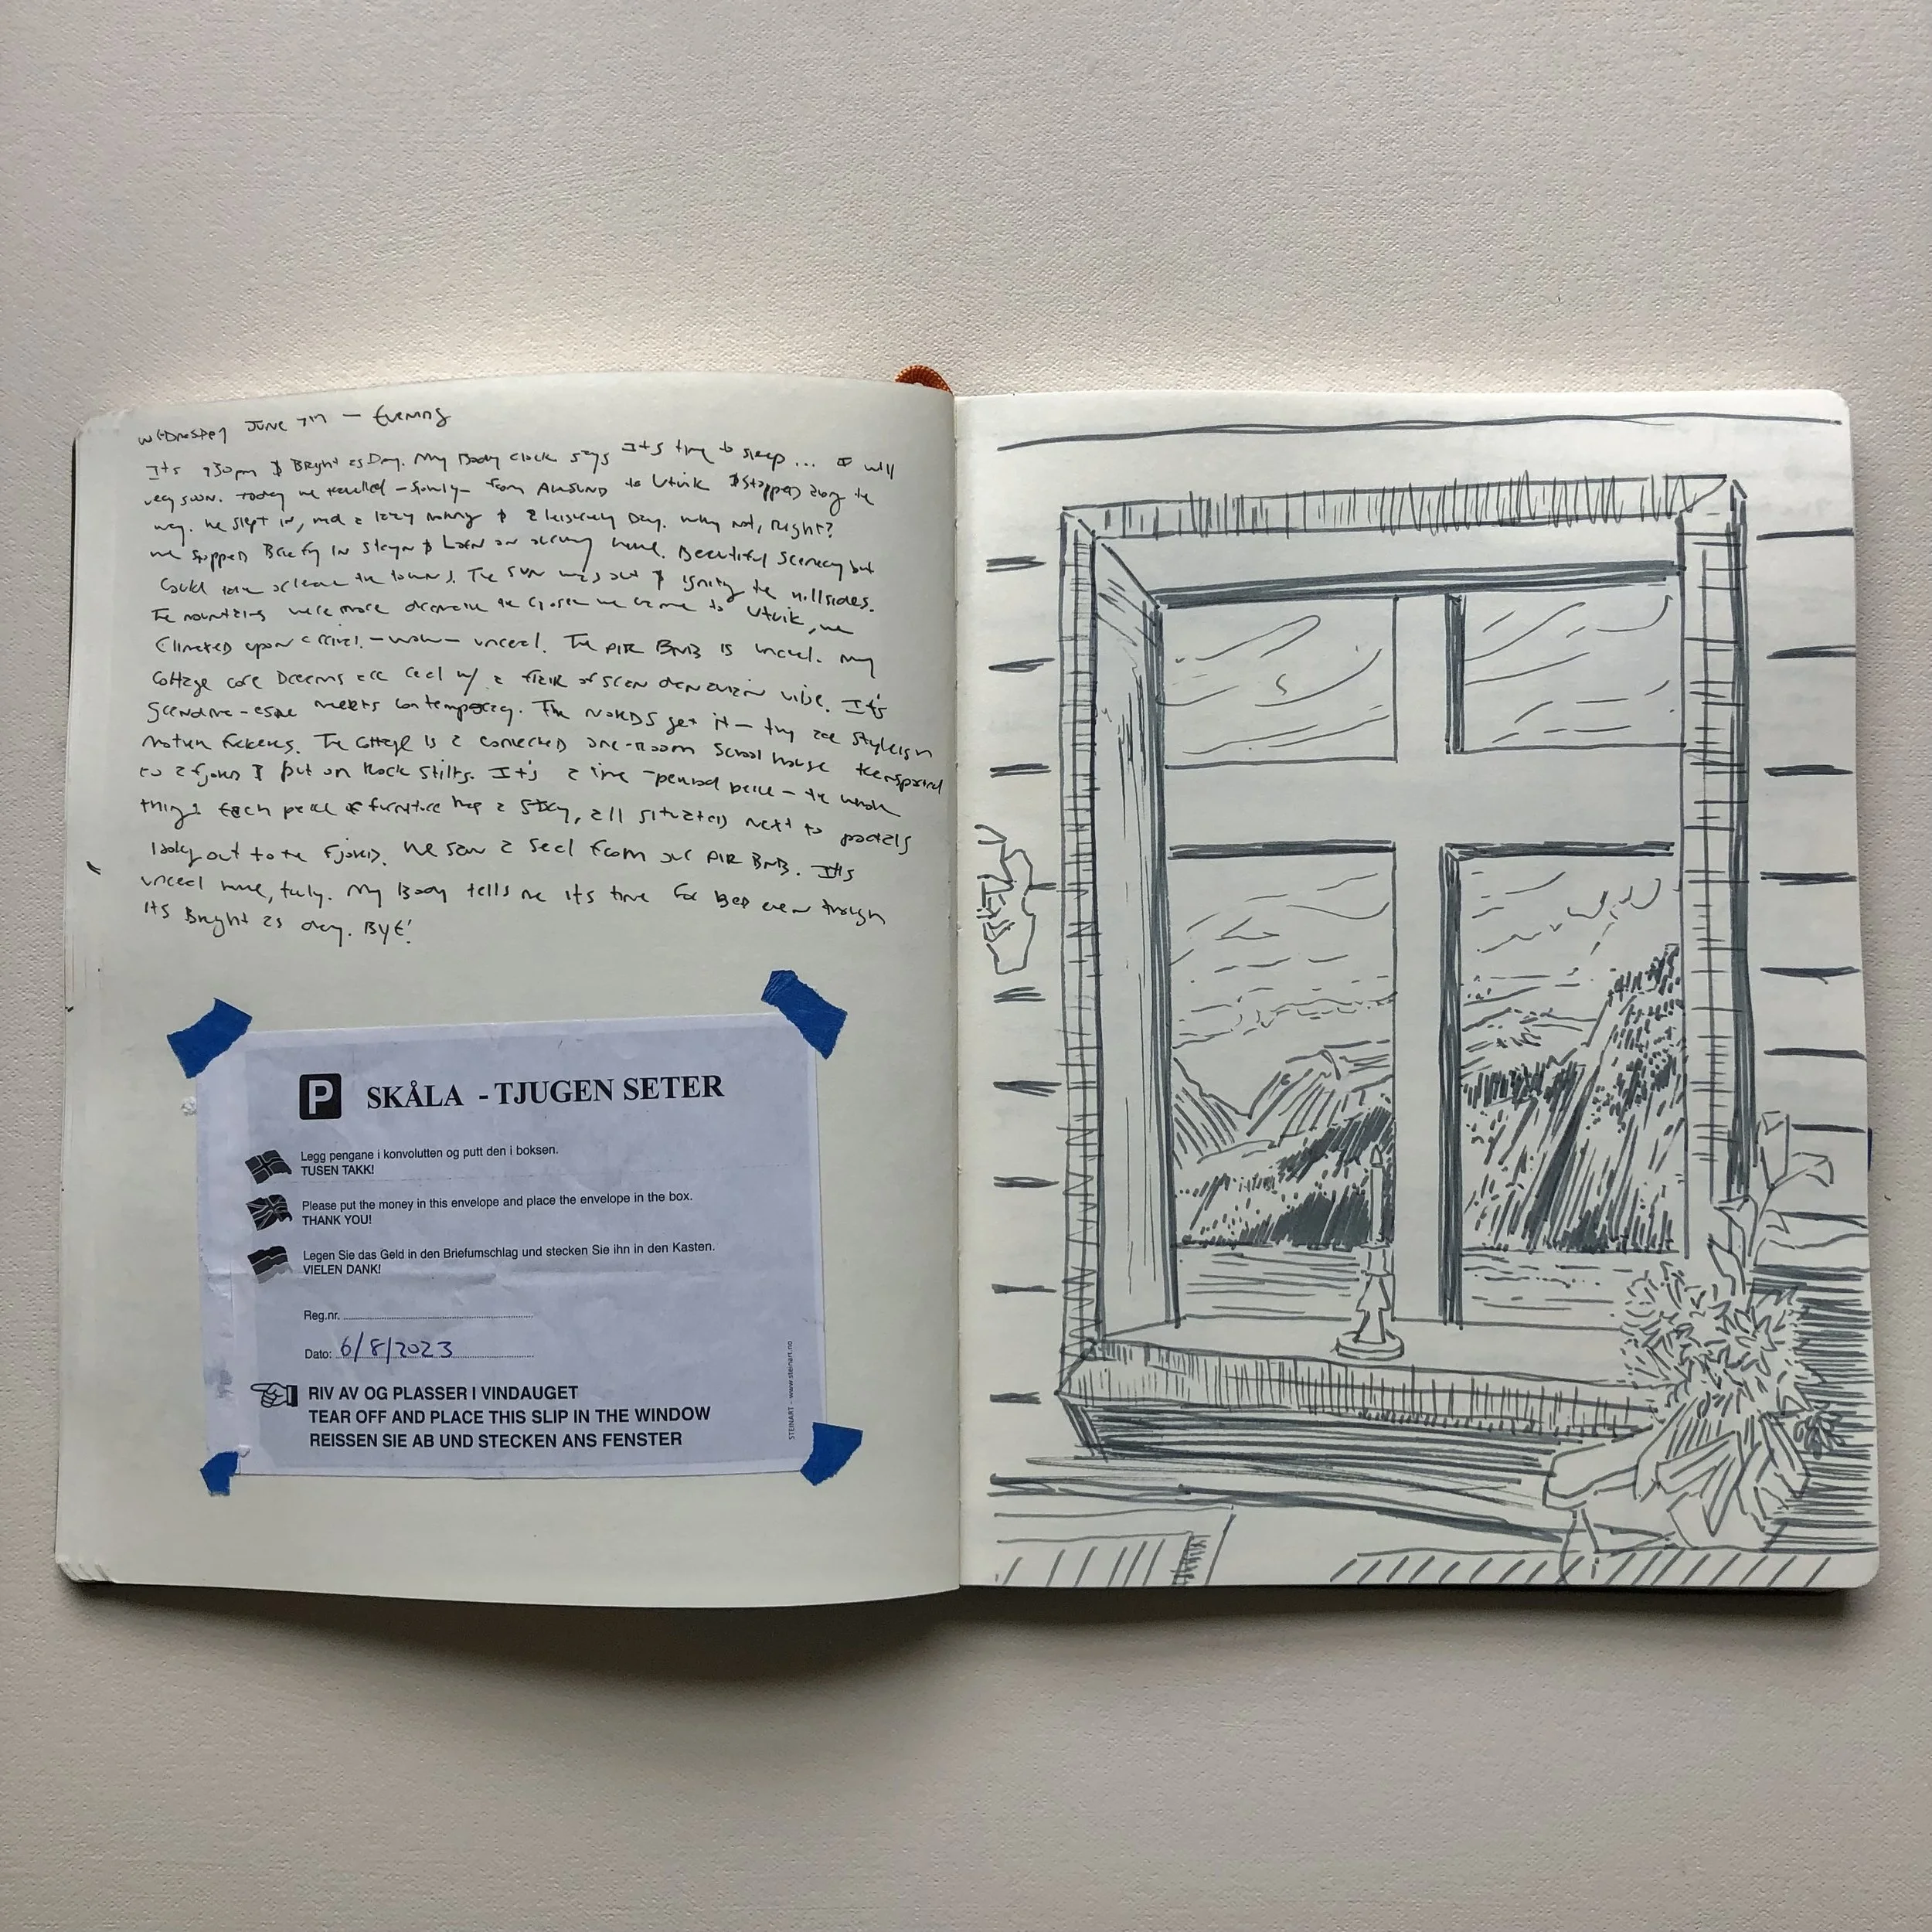 Wednesday June 7th — Evening
It's 930pm & Bright as Day. My Body clock says It's time to sleep... I will
very soon. Today we travelled - slowly - from Alesund to Utvik & stopped along the
way. We slept in, had a lazy morning & a leisurely Day. Why not, Right?
We stopped Briefly in Stryn & Loen on our way here. Beautiful scenery but
could take or leave the towns. The sun was out & igniting the hillsides.
The mountains were more dramatic the closer we came to Utvik, we
climaxed upon arrival - wow - unreal. The AIR BNB is unreal. My
cottage core Dreams are real w/ a flair of Scandanavian vibe. It's
grandma-esque meets contemporary. The Nords get it - they are stylish
mother fuckers. The cottage is a converted one-room school house transported
to a fjord & put on Rock stilts. It's a time-period piece - the whole
thing! Each piece of furniture has a story, all situated next to portals
looking out to the Fjord. We saw a seal from our AIR BNB. It's
unreal here, truly. My Body tells me it's time for Bed even though
its Bright as day. BYE!
P SKÅLA - TJUGEN SETER
Legg pengane i konvolutten og putt den i boksen.
TUSEN TAKK!
Please put the money in this envelope and place the envelope in the box.
THANK YOU!
Legen Sie das Geld in den Briefumschlag und stecken Sie ihn in den Kasten.
VIELEN DANK!
Reg.nr.
Dato: 6/8/2023
RIV AV OG PLASSER I VINDAUGET
TEAR OFF AND PLACE THIS SLIP IN THE WINDOW
REISSEN SIE AB UND STECKEN ANS FENSTER
STEINART - www.steinart.no